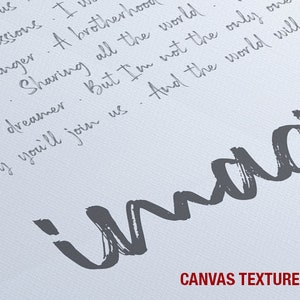 essions. I w
nger. A brotherhood
Sharing all the world.
dreamer. But I'm not the only one
you'll join us. And the world will
imag
CANVAS TEXTURE